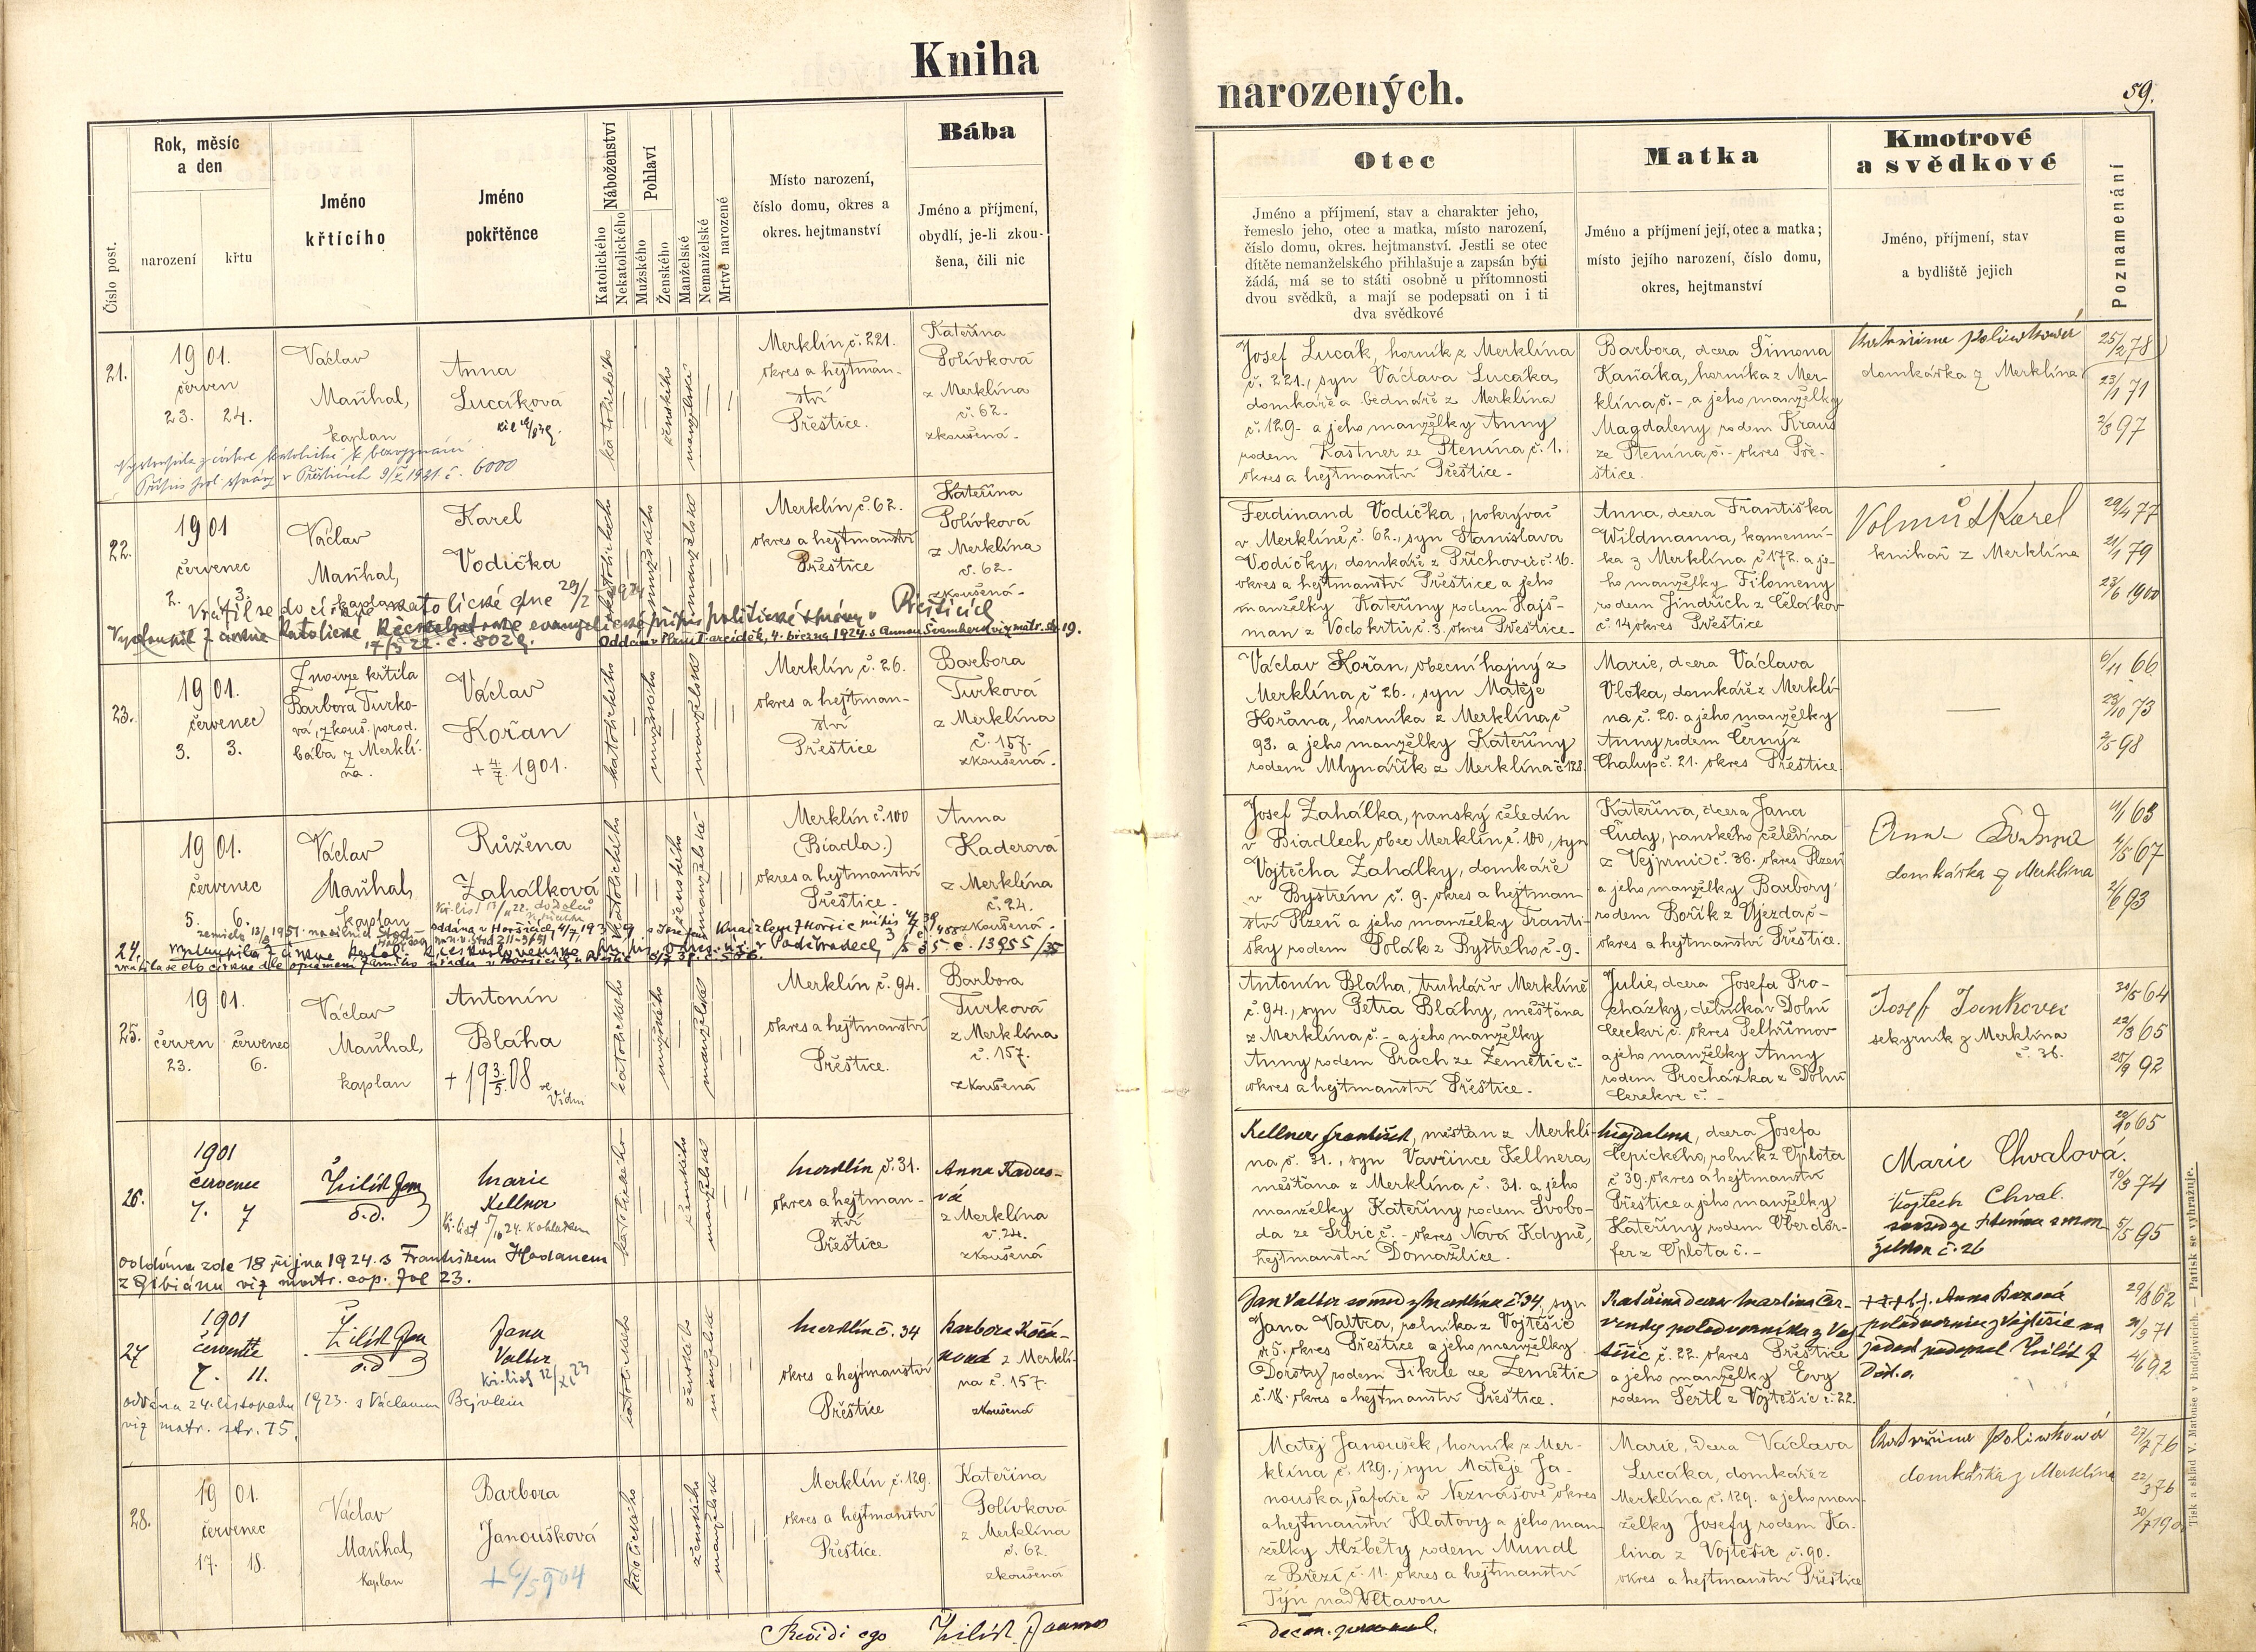 Kniha
narozených.
59.
Číslo post.
Rok, měsíc
a den
narození
křtu
Jméno
křtícího
Jméno
pokřtěnce
Náboženství
Katolického
Nekatolického
Pohlaví
Mužského
Ženského
Manželské
Nemanželské
Mrtvě narozené
Místo narození,
číslo domu, okres a
okres. hejtmanství
Bába
Jméno a příjmení,
obydlí, je-li zkou-
šena, čili nic
Otec
Jméno a příjmení, stav a charakter jeho,
řemeslo jeho, otec a matka, místo narození,
číslo domu, okres. hejtmanství. Jestli se otec
dítěte nemanželského přihlašuje a zapsán býti
žádá, má se to státi osobně u přítomnosti
dvou svědků, a mají se podepsati on i ti
dva svědkové
Matka
Jméno a příjmení její, otec a matka;
místo jejího narození, číslo domu,
okres, hejtmanství
Kmotrové
a svědkové
Jméno, příjmení, stav
a bydliště jejich
Poznamenání
21.
1901.
červen
23. 24.
Václav
Maňhal,
kaplan
Anna
Lucáková
katolického
ženského
manželské
Merklín, č. 221.
okres a hejtman-
ství
Přeštice.
Kateřina
Polívková
z Merklína
č. 62.
zkoušená.
Josef Lucák, horník z Merklína
č. 221., syn Václava Lucáka,
domkáře a bednáře z Merklína
č. 129. a jeho manželky Anny
rodem Kastner ze Ptenína, č. 1.
okres a hejtmanství Přeštice.
Barbora, dcera Šimona
Kaňáka, horníka z Mer-
klína, č. - a jeho manželky
Magdaleny rodem Kraus
ze Ptenína č. - okres Pře-
štice.
domkářka z Merklína
25/2 78
23/1 71
2/3 97
č. 6000
22.
1901
červenec
2. 3.
Václav
Maňhal,
kaplan
Karel
Vodička
katolického
mužského
manželské
Merklín, č. 62.
okres a hejtmanství
Přeštice
Kateřina
Polívková
z Merklína
č. 62.
zkoušená.
Ferdinand Vodička, pokrývač
v Merklíně č. 62., syn Stanislava
Vodičky, domkáře z Příchovic č. 16.
okres a hejtmanství Přeštice a jeho
manželky Kateřiny rodem Hajš-
man z Vodokrtů č. 3. okres Přeštice.
Anna, dcera Františka
Wildmanna, kamenní-
ka z Merklína č. 172. a je-
ho manželky Filomeny
rodem Jindřich z Čelákov
č. 14 okres Přeštice
Karel
knihař z Merklína
29/4 77
21/1 79
23/6 1900
Vrátil se do církve katolické dne
Oddán v Plzni 4. března 1924 s Annou
23.
1901.
červenec
3. 3.
Z nouze křtila
Barbora Turko-
vá, zkouš. porod.
bába z Merklí-
na.
Václav
Kořan
+ 4/7. 1901.
katolického
mužského
manželské
Merklín, č. 26.
okres a hejtman-
ství
Přeštice
Barbora
Turková
z Merklína
č. 157.
zkoušená.
Václav Kořan, obecní hajný z
Merklína č. 26., syn Matěje
Kořana, horníka z Merklína, č.
93. a jeho manželky Kateřiny
rodem Mlynářík z Merklína č. 128.
Marie, dcera Václava
Vlčka, domkáře z Merklí-
na č. 20. a jeho manželky
Anny rodem Černý z
Chalup č. 21. okres Přeštice.
6/11 66.
23/10 73
2/5 98
24.
1901.
červenec
5. 6.
Václav
Maňhal,
kaplan
Růžena
Zahálková
katolického
ženského
manželské
Merklín č. 100
(Biadla.)
okres a hejtmanství
Přeštice.
Anna
Kaderová
z Merklína
č. 24.
zkoušená.
Josef Zahálka, panský čeledín
v Biadlech obce Merklín č. 100, syn
Vojtěcha Zahálky, domkáře
v Bystrém č. 9. okres a hejtman-
ství Plzeň a jeho manželky Franti-
šky rodem Polák z Bystrého č. 9.
Kateřina, dcera Jana
Čudy, panského čeledína
z Vejprnic č. 36. okres Plzeň
a jeho manželky Barbory
rodem Bočík z Újezda, č. -
okres a hejtmanství Přeštice.
domkářka z Merklína
4/5 67
2/6 93
25.
1901.
červen červenec
23. 6.
Václav
Maňhal,
kaplan
Antonín
Bláha
+ 19 3/5 08 ve
Vídni
katolického
mužského
manželské
Merklín, č. 94.
okres a hejtmanství
Přeštice.
Barbora
Turková
z Merklína
č. 157.
zkoušená
Antonín Bláha, truhlář v Merklíně
č. 94., syn Petra Bláhy, měšťana
z Merklína č. - a jeho manželky
Anny rodem Prach ze Zemětic č. -
okres a hejtmanství Přeštice.
Julie, dcera Josefa Pro-
cházky, dělníka v Dolní
Cerekvi č. okres Pelhřimov
a jeho manželky Anny
rodem Procházka z Dolní
Cerekve č. -
Josef Jankovec
sekyrník z Merklína
č. 36.
21/5 64
22/3 65
25/9 92
26.
1901
červenec
7. 7
Marie
Kellner
katolického
ženského
manželské
Merklín, č. 31.
okres a hejtman-
ství
Přeštice
Anna Kadero-
vá
z Merklína
č. 24.
zkoušená
Kellner František, měšťan z Merklí-
na č. 31., syn Vavřince Kellnera,
měšťana z Merklína, č. 31. a jeho
manželky Kateřiny rodem Svobo-
da ze Srbic č. - okres Nová Kdyně,
hejtmanství Domažlice.
Magdalena, dcera Josefa
Čepického, rolník z Oplota
č. 39. okres a hejtmanství
Přeštice a jeho manželky
Kateřiny rodem Oberdör-
fer z Oplota č. -
Marie Chvalová.
Vojtěch Chval.
10/3 74
5/5 95
oddána zde 18 října 1924 s Františkem
viz matr. cop. fol 23.
27
1901
července
7. 11.
Jana
Valter
katolického
ženského
manželské
Merklín č. 34
okres a hejtmanství
Přeštice
Barbora
z Merklí-
na č. 157.
zkoušená
Jan Valter soused z Merklína č. 34, syn
Jana Valtra, rolníka z Vojtěšic
č. 5. okres Přeštice a jeho manželky
Doroty rodem Fikrle ze Zemětic
č. 18. okres a hejtmanství Přeštice.
Kateřina dcera Martina Čer-
č. 22. okres Přeštice
a jeho manželky Evy
rodem Šertl z Vojtěšic č. 22.
4/6 92
oddána 24. listopadu 1923. s Václavem Bejvlem
viz matr. str. 15.
28.
1901.
červenec
17. 18.
Václav
Maňhal,
kaplan
Barbora
Janoušková
katolického
ženského
manželské
Merklín, č. 129.
okres a hejtmanství
Přeštice.
Kateřina
Polívková
z Merklína
č. 62.
zkoušená
Matěj Janoušek, horník z Mer-
klína č. 129., syn Matěje Ja-
nouška, šafáře v Neznášově okres
a hejtmanství Klatovy a jeho man-
želky Alžběty rodem Mundl
z Březí č. 11. okres a hejtmanství
Týn nad Vltavou
Marie, dcera Václava
Lucáka, domkáře z
Merklína, č. 129. a jeho man-
želky Josefy rodem Ka-
lina z Vojtěšic č. 90.
okres a hejtmanství Přeštice
domkářka z Merklína
27/2 76
Tisk a sklad V. Matouše v Budějovicích. — Patisk se vyhražuje.